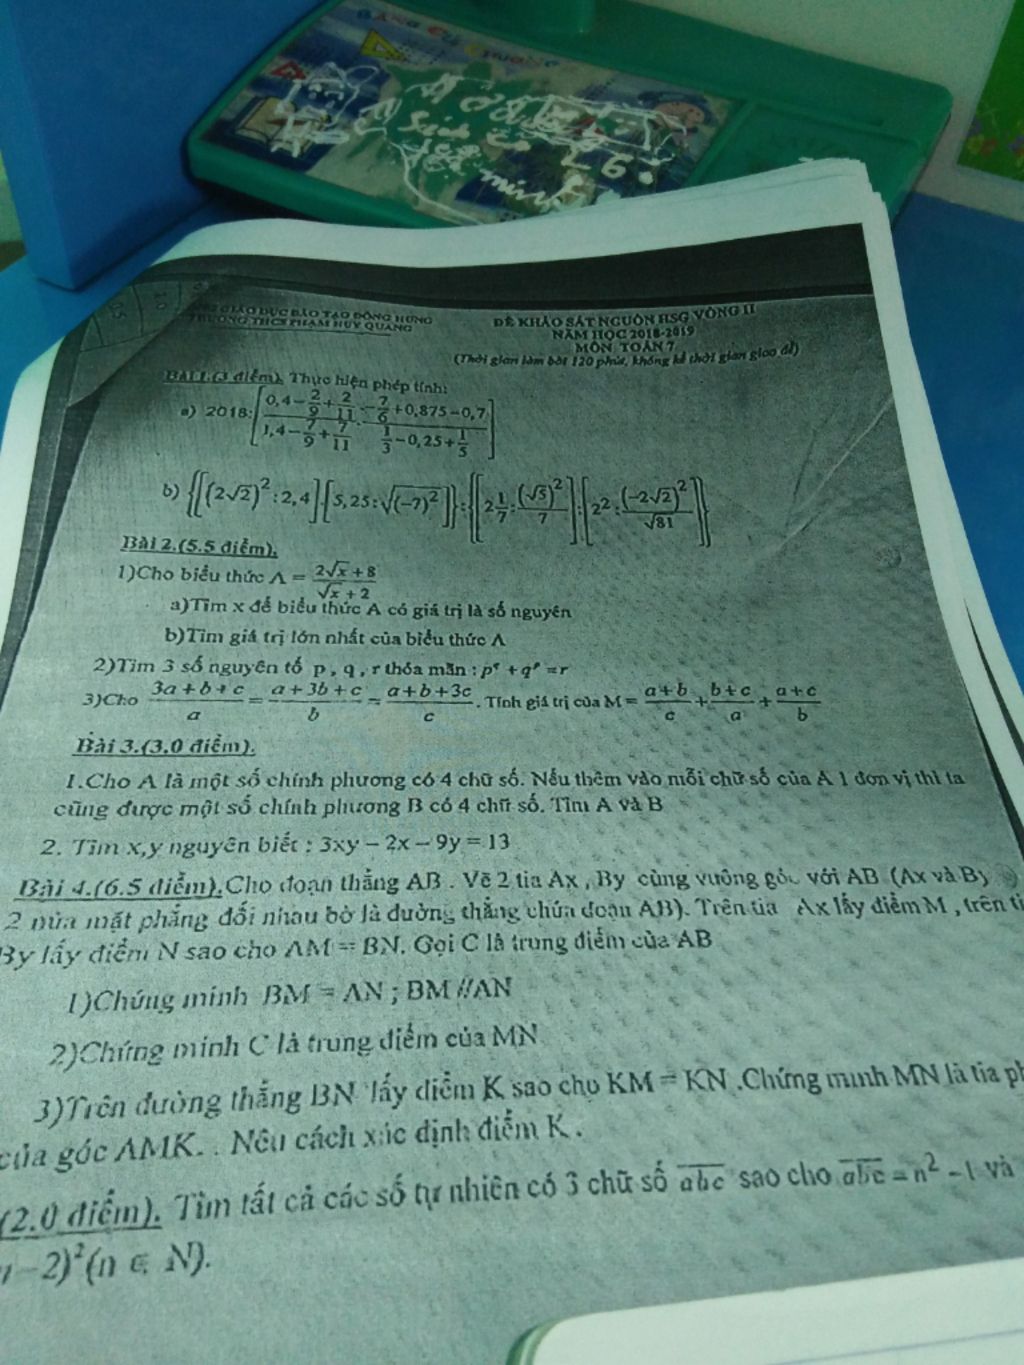 GIÁO DỤC ĐÀO TẠO ĐÔNG HƯNG
TRƯỜNG THCS PHẠM HUY QUANG
ĐỀ KHẢO SÁT NGUỒN HSG VÒNG II
NĂM HỌC 2018-2019
MÔN: TOÁN 7
(Thời gian làm bài 120 phút, không kể thời gian giao đề)
BÀI 1.(3 điểm). Thực hiện phép tính:
a) 2018:[(0,4-2/9+2/11)/(1,4-7/9+7/11) : (-7/6+0,875-0,7)/(1/3-0,25+1/5)]
b) {[(2√2)²:2,4].[5,25:√(-7)²]}:{[2 1/7:(√5)²/7]:[2²:(-2√2)²/√81]}
Bài 2.(5.5 điểm).
1)Cho biểu thức A = (2√x+8)/(√x+2)
a)Tìm x để biểu thức A có giá trị là số nguyên
b)Tìm giá trị lớn nhất của biểu thức A
2)Tìm 3 số nguyên tố p , q , r thỏa mãn : p^q + q^p = r
3)Cho (3a+b+c)/a = (a+3b+c)/b = (a+b+3c)/c . Tính giá trị của M = (a+b)/c + (b+c)/a + (a+c)/b
Bài 3.(3.0 điểm).
1.Cho A là một số chính phương có 4 chữ số. Nếu thêm vào mỗi chữ số của A 1 đơn vị thì ta
cũng được một số chính phương B có 4 chữ số. Tìm A và B
2. Tìm x,y nguyên biết : 3xy – 2x – 9y = 13
Bài 4.(6.5 điểm).Cho đoạn thẳng AB . Vẽ 2 tia Ax , By cùng vuông góc với AB (Ax và By
2 nửa mặt phẳng đối nhau bờ là đường thẳng chứa đoạn AB). Trên tia Ax lấy điểm M , trên
By lấy điểm N sao cho AM = BN. Gọi C là trung điểm của AB
1)Chứng minh BM = AN ; BM //AN
2)Chứng minh C là trung điểm của MN
3)Trên đường thẳng BN lấy điểm K sao cho KM = KN .Chứng minh MN là tia
của góc AMK. . Nêu cách xác định điểm K .
(2.0 điểm). Tìm tất cả các số tự nhiên có 3 chữ số abc sao cho abc = n² –1 và
– 2)²(n ∈ N).